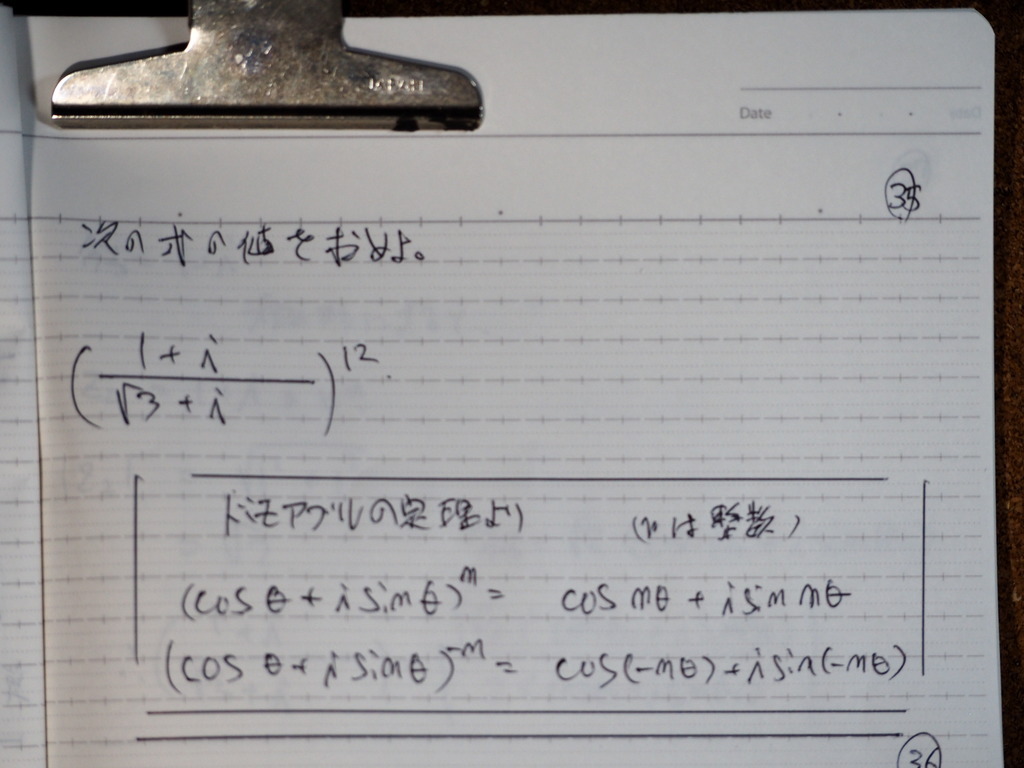 JAPAN
Date
35
次の式の値を求めよ。
(1+i / √3+i)^12
ド・モアブルの定理より (nは整数)
(cos θ + i sin θ)^n = cos nθ + i sin nθ
(cos θ + i sin θ)^-n = cos(-nθ) + i sin(-nθ)
36